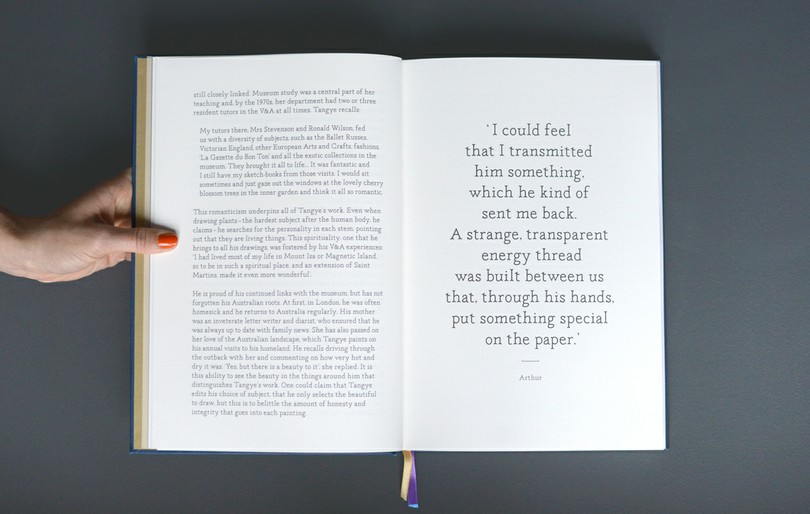 still closely linked. Museum study was a central part of her
teaching and, by the 1970s, her department had two or three
resident tutors in the V&A at all times. Tangye recalls:
My tutors there, Mrs Stevenson and Ronald Wilson, fed
us with a diversity of subjects, such as the Ballet Russes,
Victorian England, other European Arts and Crafts, fashions,
'La Gazette du Bon Ton' and all the exotic collections in the
museum. They brought it all to life... It was fantastic and
I still have my sketch-books from those visits. I would sit
sometimes and just gaze out the windows at the lovely cherry
blossom trees in the inner garden and think it all so romantic.
This romanticism underpins all of Tangye's work. Even when
drawing plants - the hardest subject after the human body, he
claims - he searches for the personality in each stem, pointing
out that they are living things. This spirituality, one that he
brings to all his drawings, was fostered by his V&A experiences:
'I had lived most of my life in Mount Isa or Magnetic Island,
so to be in such a spiritual place, and an extension of Saint
Martins, made it even more wonderful'.
He is proud of his continued links with the museum, but has not
forgotten his Australian roots. At first, in London, he was often
homesick and he returns to Australia regularly. His mother
was an inveterate letter writer and diarist, who ensured that he
was always up to date with family news. She has also passed on
her love of the Australian landscape, which Tangye paints on
his annual visits to his homeland. He recalls driving through
the outback with her and commenting on how very hot and
dry it was. 'Yes, but there is a beauty to it', she replied. It is
this ability to see the beauty in the things around him that
distinguishes Tangye's work. One could claim that Tangye
edits his choice of subject, that he only selects the beautiful
to draw, but this is to belittle the amount of honesty and
integrity that goes into each painting.
'I could feel
that I transmitted
him something,
which he kind of
sent me back.
A strange, transparent
energy thread
was built between us
that, through his hands,
put something special
on the paper.'
Arthur